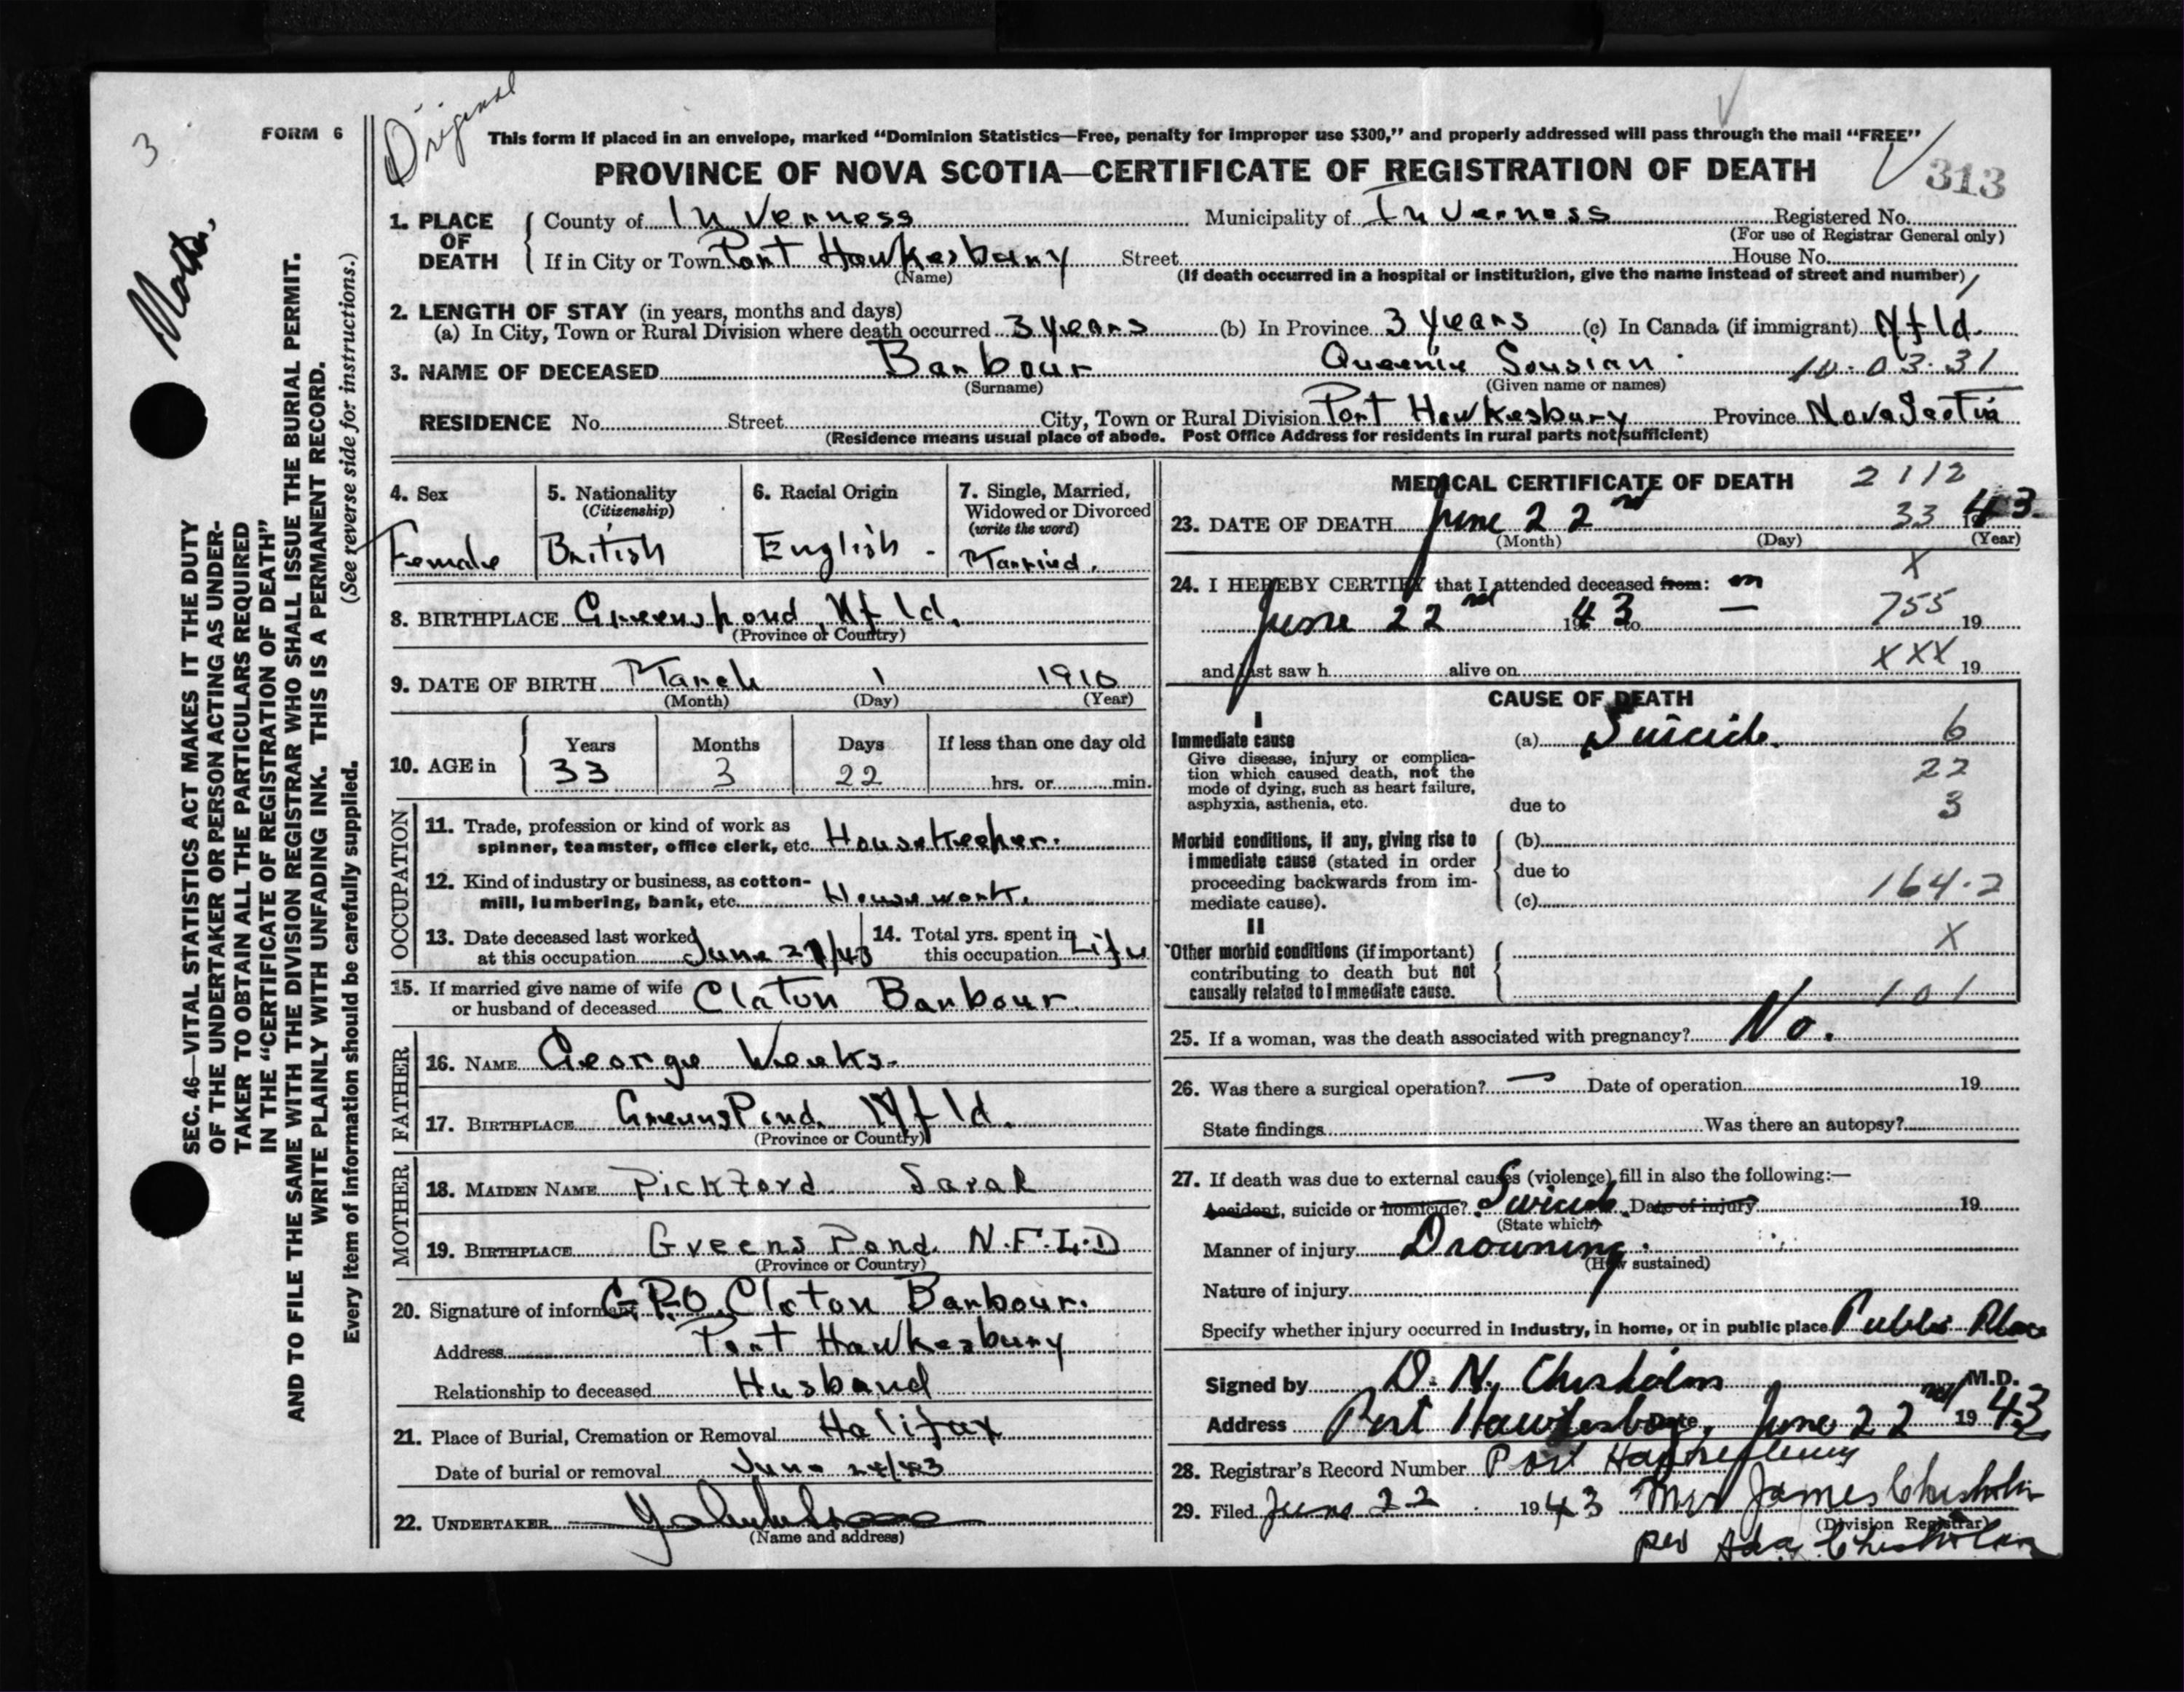 Original
3
FORM 6
This form if placed in an envelope, marked "Dominion Statistics—Free, penalty for improper use $300," and properly addressed will pass through the mail "FREE"
PROVINCE OF NOVA SCOTIA—CERTIFICATE OF REGISTRATION OF DEATH
313
1. PLACE OF DEATH County of Inverness Municipality of Inverness Registered No.
(For use of Registrar General only)
If in City or Town Port Hawkesbury Street House No.
(Name) (If death occurred in a hospital or institution, give the name instead of street and number)
2. LENGTH OF STAY (in years, months and days)
(a) In City, Town or Rural Division where death occurred 3 years (b) In Province 3 years (c) In Canada (if immigrant) Nfld.
3. NAME OF DECEASED Barbour Queenie Sousian 10-03-31
(Surname) (Given name or names)
RESIDENCE No. Street City, Town or Rural Division Port Hawkesbury Province Nova Scotia
(Residence means usual place of abode. Post Office Address for residents in rural parts not sufficient)
4. Sex Female
5. Nationality (Citizenship) British
6. Racial Origin English
7. Single, Married, Widowed or Divorced (write the word) Married.
8. BIRTHPLACE Greenspond, Nfld.
(Province or Country)
9. DATE OF BIRTH March 1 1910
(Month) (Day) (Year)
10. AGE in Years Months Days If less than one day old
33 3 22 hrs. or min.
OCCUPATION
11. Trade, profession or kind of work as
spinner, teamster, office clerk, etc. Housekeeper.
12. Kind of industry or business, as cotton-
mill, lumbering, bank, etc. Housework.
13. Date deceased last worked
at this occupation June 21/43
14. Total yrs. spent in
this occupation Life
15. If married give name of wife
or husband of deceased Claton Barbour
FATHER
16. NAME George Weeks
17. BIRTHPLACE Greens Pond, Nfld.
(Province or Country)
MOTHER
18. MAIDEN NAME Pickford Sarah
19. BIRTHPLACE Greens Pond. N.F.L.D
(Province or Country)
20. Signature of informant Claton Barbour.
Address Port Hawkesbury
Relationship to deceased Husband
21. Place of Burial, Cremation or Removal Halifax
Date of burial or removal June 24/43
22. UNDERTAKER
(Name and address)
MEDICAL CERTIFICATE OF DEATH 2112
23. DATE OF DEATH June 22nd 33 1943
(Month) (Day) (Year)
24. I HEREBY CERTIFY that I attended deceased from: on X
June 22nd 1943 to — 755 19
and last saw h alive on XXX 19
CAUSE OF DEATH
I
Immediate cause (a) Suicide. 6
Give disease, injury or complica-
tion which caused death, not the 22
mode of dying, such as heart failure,
asphyxia, asthenia, etc. due to 3
Morbid conditions, if any, giving rise to (b)
immediate cause (stated in order
proceeding backwards from im- due to
mediate cause). (c) 164.2
II
Other morbid conditions (if important) X
contributing to death but not
causally related to immediate cause. 101
25. If a woman, was the death associated with pregnancy? No.
26. Was there a surgical operation? — Date of operation 19
State findings Was there an autopsy?
27. If death was due to external causes (violence) fill in also the following:—
Accident, suicide or homicide? Suicide. Date of injury 19
(State which)
Manner of injury Drowning.
(How sustained)
Nature of injury
Specify whether injury occurred in industry, in home, or in public place Public Place
Signed by D. N. Chisholm M.D.
Address Port Hawkesbury Date June 22nd 1943
28. Registrar's Record Number Port
29. Filed June 22 1943 Mrs James Chisholm
(Division Registrar)
per Ada Chisholm
SEC. 46—VITAL STATISTICS ACT MAKES IT THE DUTY
OF THE UNDERTAKER OR PERSON ACTING AS UNDER-
TAKER TO OBTAIN ALL THE PARTICULARS REQUIRED
IN THE "CERTIFICATE OF REGISTRATION OF DEATH"
AND TO FILE THE SAME WITH THE DIVISION REGISTRAR WHO SHALL ISSUE THE BURIAL PERMIT.
WRITE PLAINLY WITH UNFADING INK. THIS IS A PERMANENT RECORD.
Every item of information should be carefully supplied. (See reverse side for instructions.)